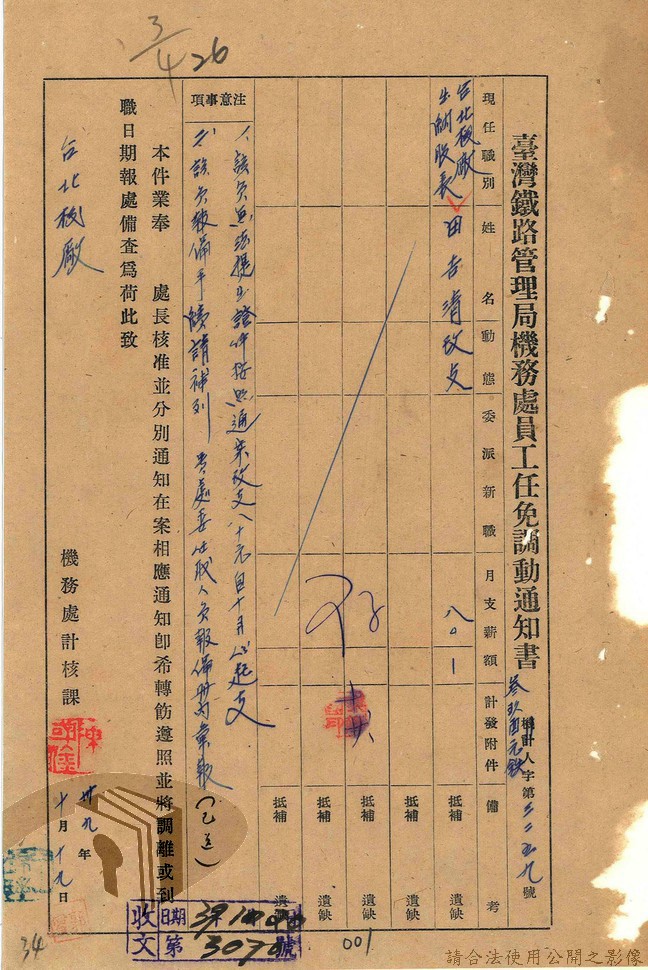 3/4 26
臺灣鐵路管理局機務處員工任免調動通知書
機計人字第三二五九號
現任職別
姓名
動態
委派新職
月支薪額
計發附件
備考
台北機廠
出納股長
田吉清
改支
八〇—
抵補 遺缺
抵補 遺缺
抵補 遺缺
抵補 遺缺
抵補 遺缺
注意事項
一、該員無法提出證件按照通案改支八十元自十月份起支
二、該員報備手續請補列 貴處委任職人員報備冊內彙報(已送)
本件業奉 處長核准並分別通知在案相應通知卽希轉飭遵照並將調離或到
職日期報處備查爲荷此致
台北機廠
機務處計核課
卅九年
十月十九日
收文
日期 39
第 號
001
34
請合法使用公開之影像